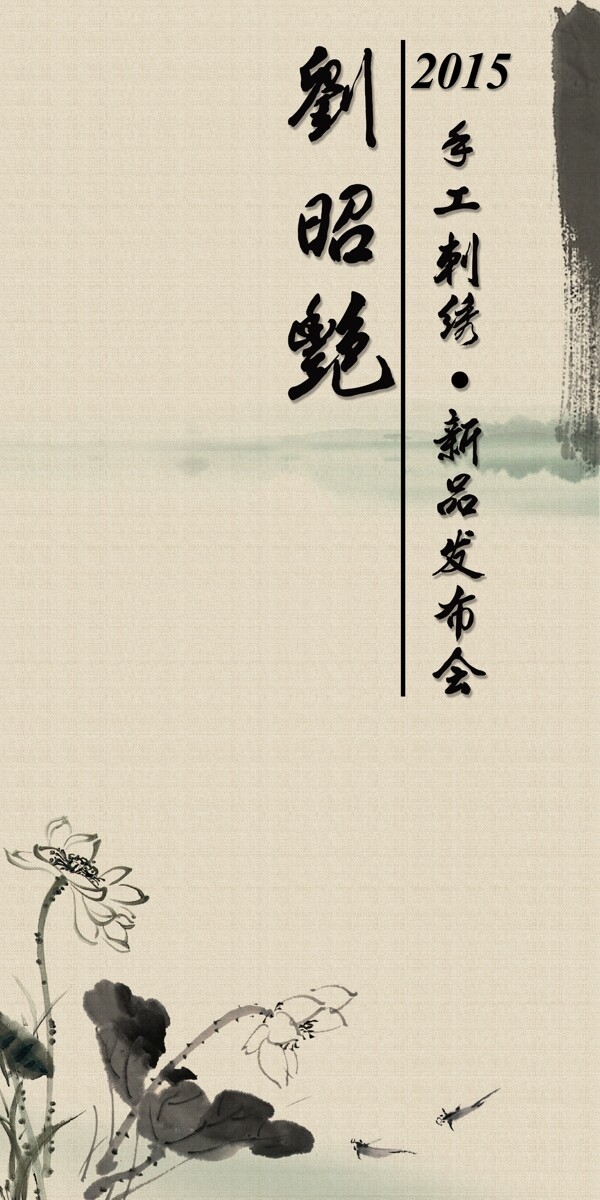 2015
手工刺绣●新品发布会
劉昭艶